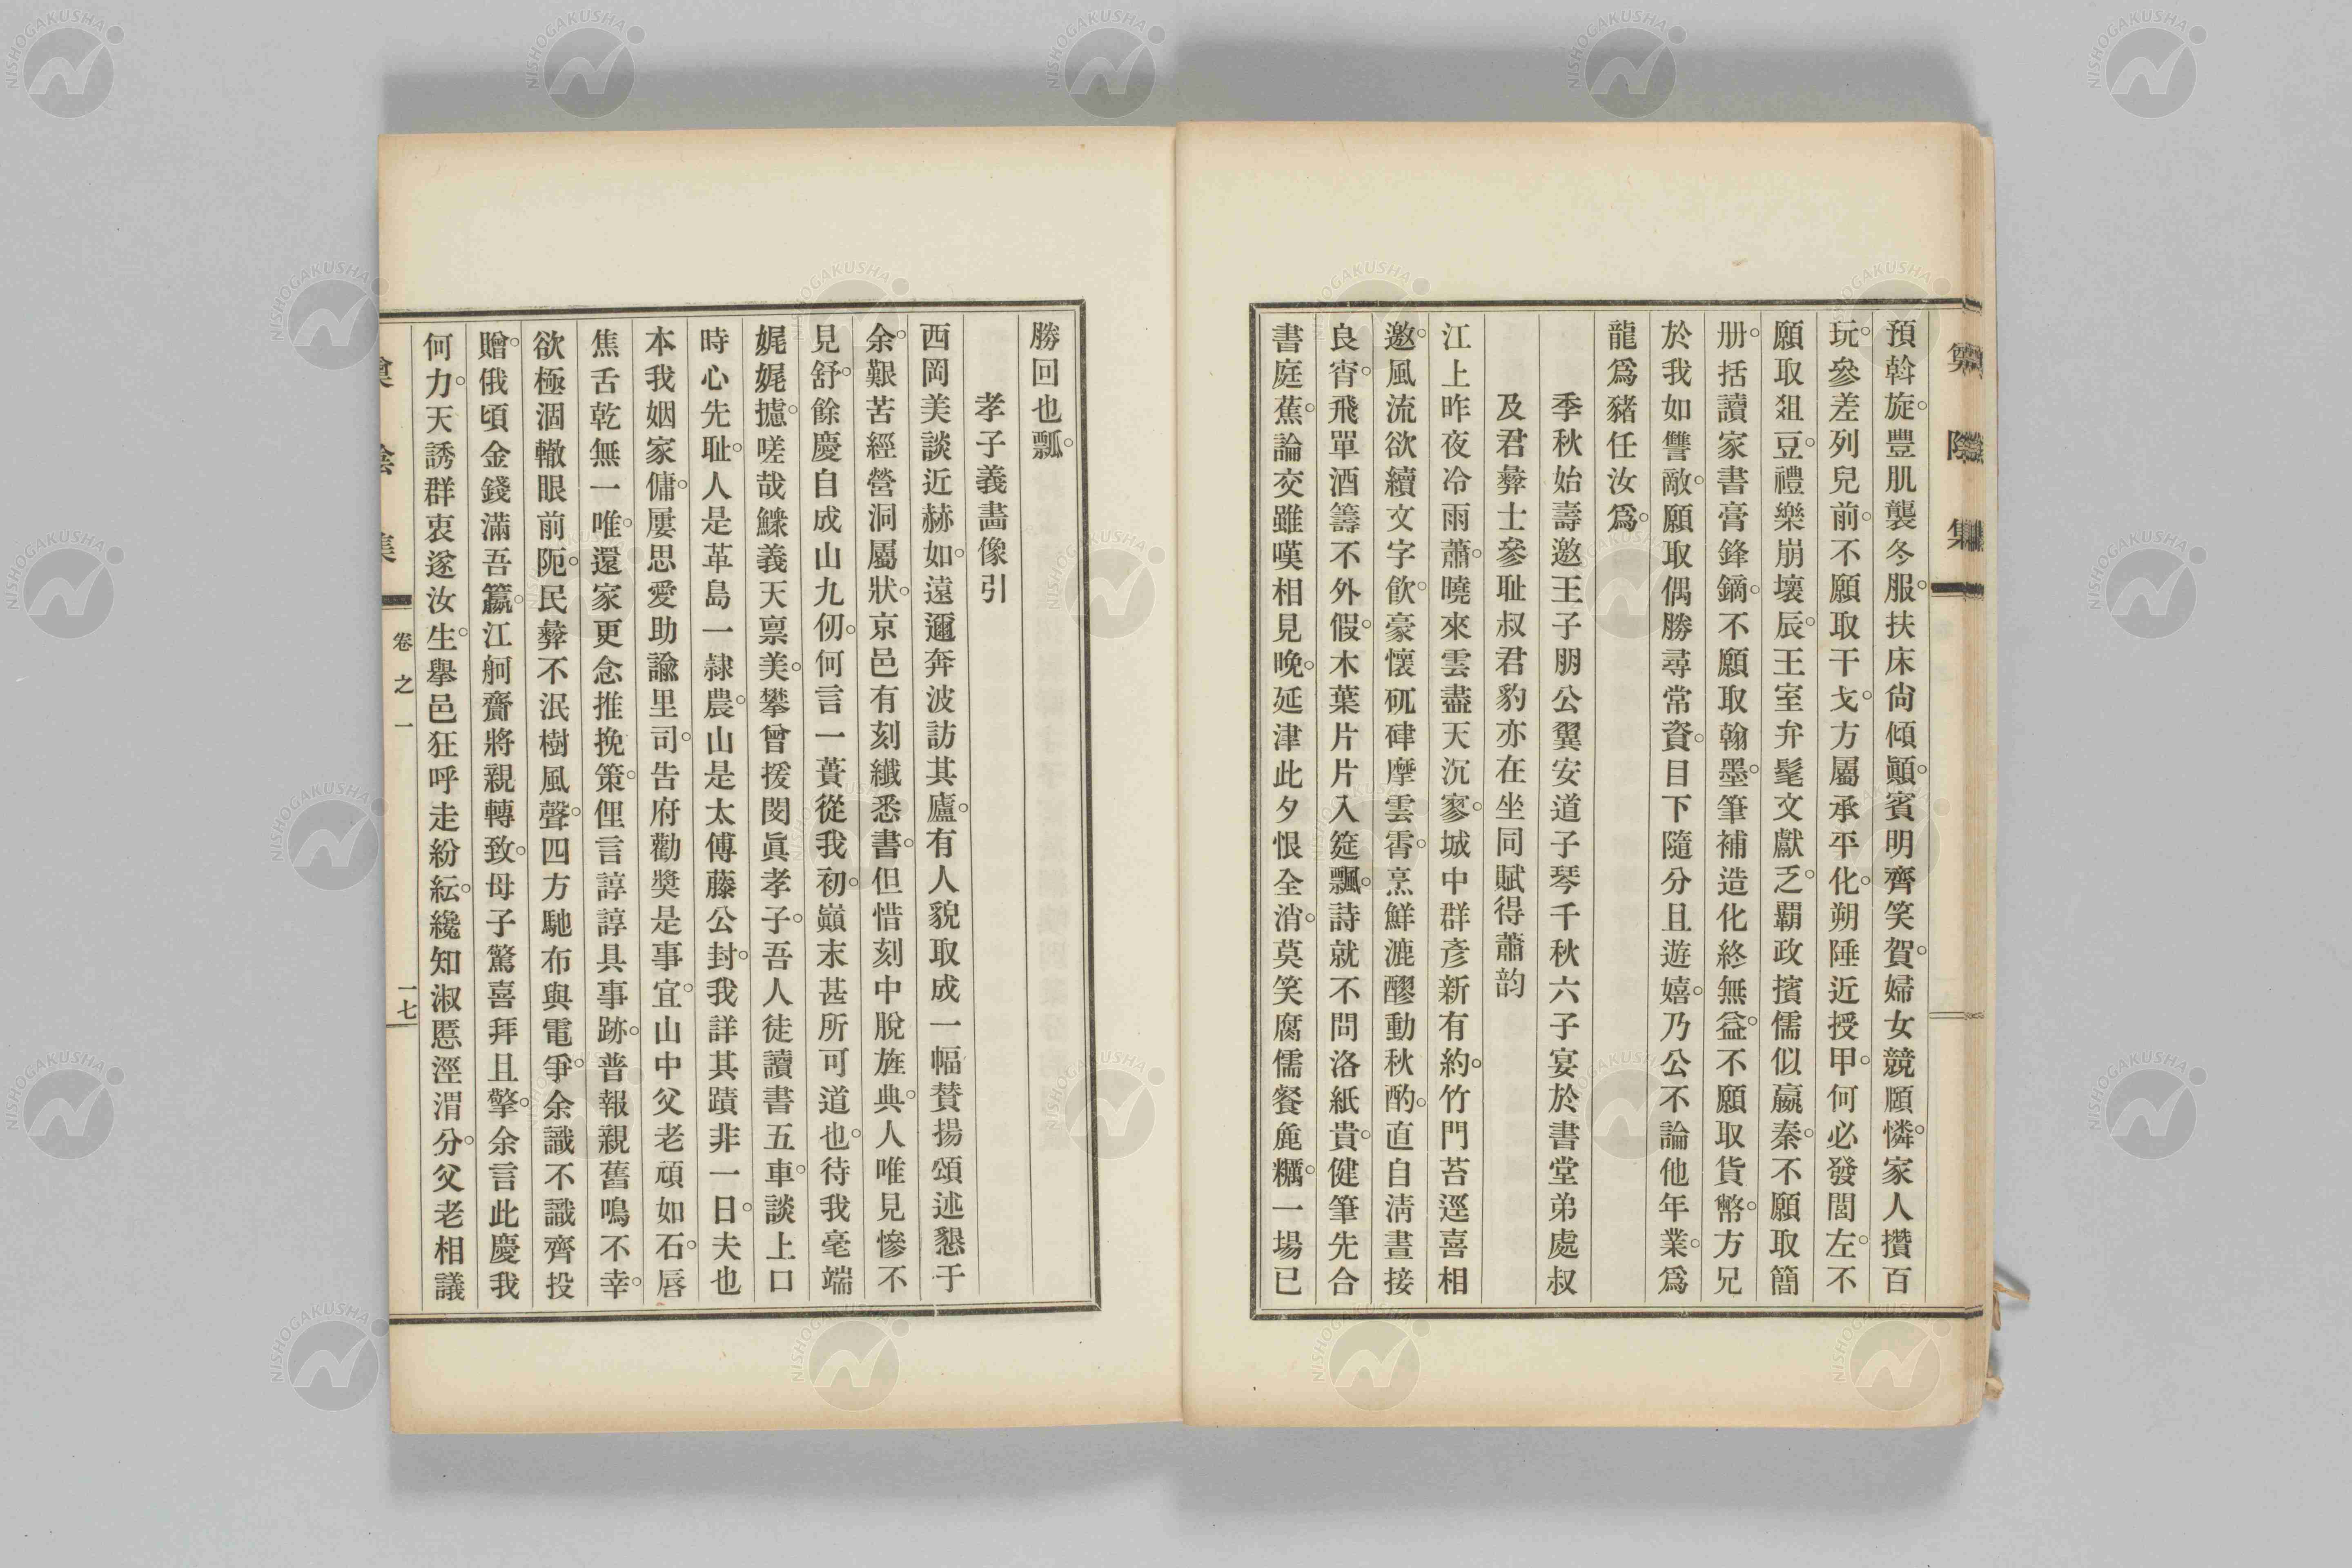 預斡旋。豐肌襲冬服。扶床尙傾顚。賓明齊笑賀。婦女競願憐。家人攢百
玩。參差列兒前。不願取干戈。方屬承平化。朔陲近授甲。何必發閭左。不
願取爼豆。禮樂崩壞辰。王室弁髦文獻乏。覇政擯儒似嬴秦。不願取簡
册。括讀家書膏鋒鏑。不願取翰墨。筆補造化終無益。不願取貨幣。方兄
於我如讐敵。願取偶勝尋常資。目下隨分且遊嬉。乃公不論他年業。爲
龍爲豬任汝爲。
季秋始壽邀王子朋公翼安道子琴千秋六子宴於書堂弟處叔
及君彝士參耻叔君豹亦在坐同賦得蕭韵
江上昨夜冷雨蕭。曉來雲盡天沉寥。城中群彥新有約。竹門苔逕喜相
邀。風流欲續文字飮。豪懷矹硉摩雲霄。烹鮮漉醪動秋酌。直自淸晝接
良宵。飛單酒籌不外假。木葉片片入筵飄。詩就不問洛紙貴。健筆先合
書庭蕉。論交雖嘆相見晚。延津此夕恨全消。莫笑腐儒餐麁糲。一場已
勝回也瓢。
孝子義畵像引
西岡美談近赫如。遠邇奔波訪其廬。有人貌取成一幅贊揚頌述懇于
余。艱苦經營洞屬狀。京邑有刻纖悉書。但惜刻中脫旌典。人唯見慘不
見舒。餘慶自成山九仞。何言一蕢從我初。巓末甚所可道也。待我毫端
娓娓攄。嗟哉鰥義天禀美。攀曾援閔眞孝子。吾人徒讀書五車。談上口
時心先耻。人是革島一隷農。山是太傅藤公封。我詳其蹟非一日。夫也
本我姻家傭。屢思愛助諭里司。告府勸奬是事宜。山中父老頑如石。唇
焦舌乾無一唯。還家更念推挽策。俚言諄諄具事跡。普報親舊鳴不幸。
欲極涸轍眼前阨。民彝不泯樹風聲。四方馳布與電爭。余識不識齊投
贈。俄頃金錢滿吾籯。江舸齎將親轉致。母子驚喜拜且擎。余言此慶我
何力。天誘群衷遂汝生。擧邑狂呼走紛紜。纔知淑慝涇渭分。父老相議
卷之一
一七